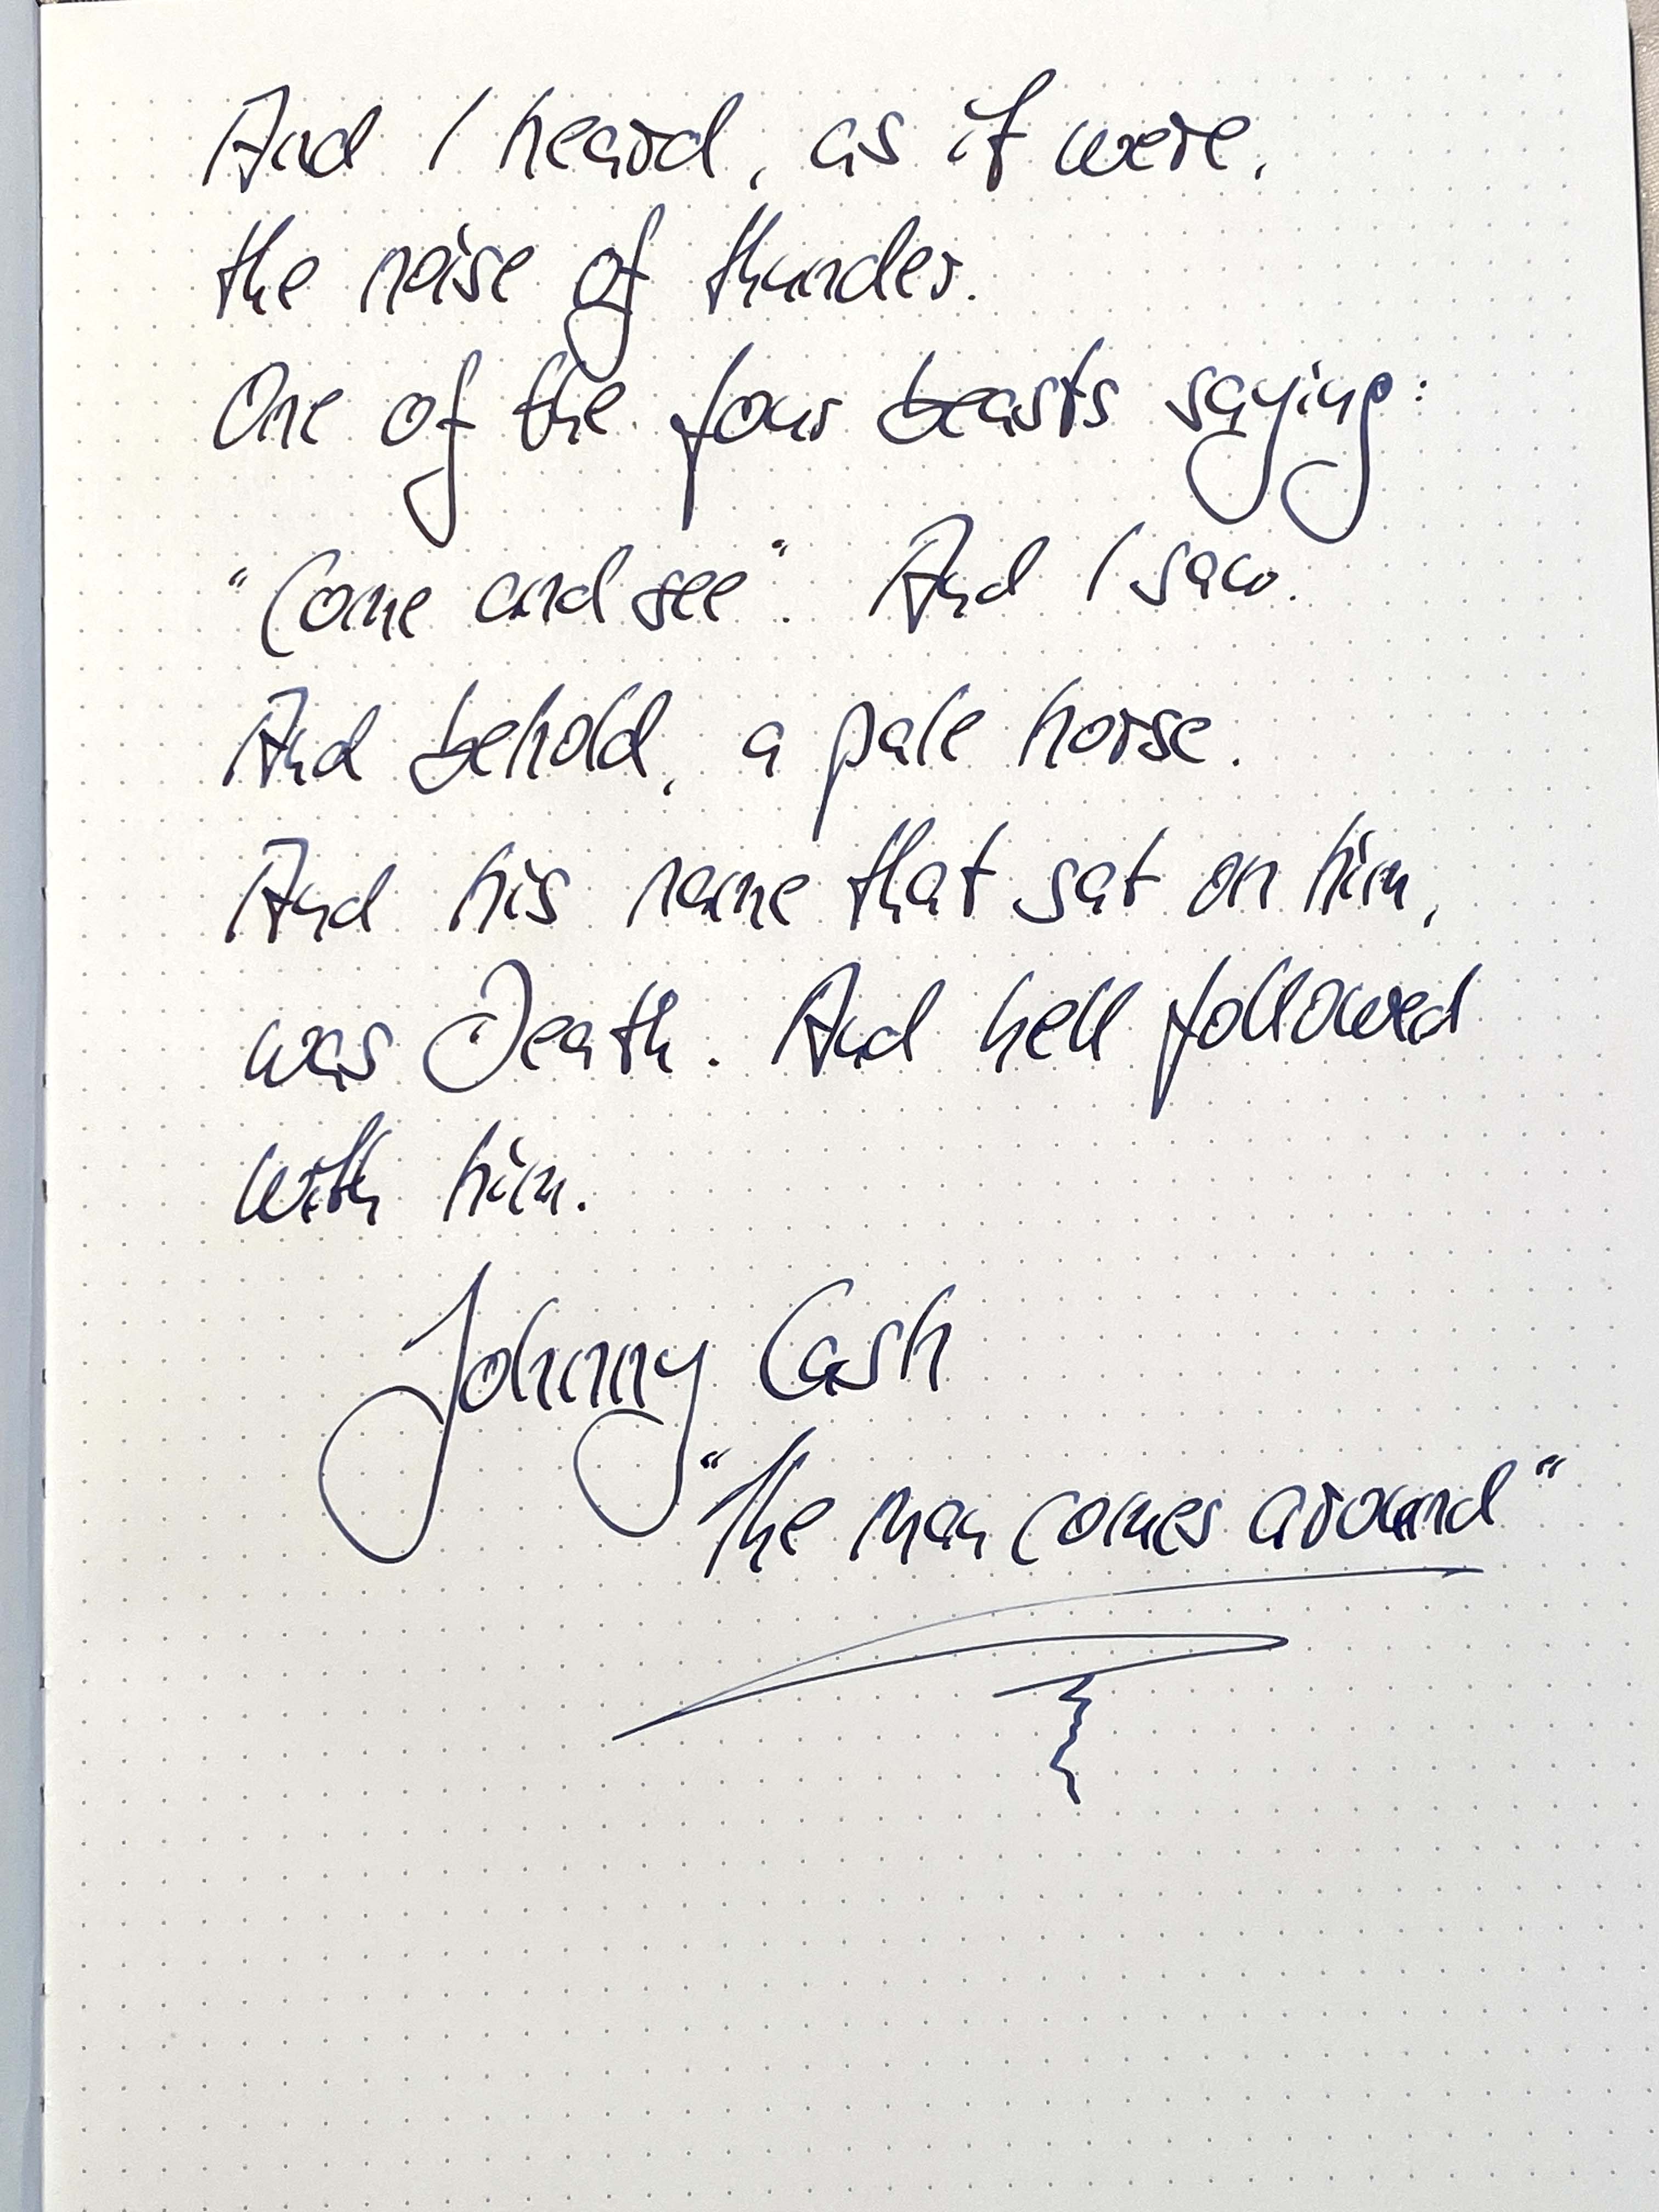 And I heard, as if were,
the noise of thunder.
One of the four beasts saying:
"Come and see". And I saw.
And behold, a pale horse.
And his name that sat on him,
was Death. And hell followed
with him.
Johnny Cash
"The man comes around"